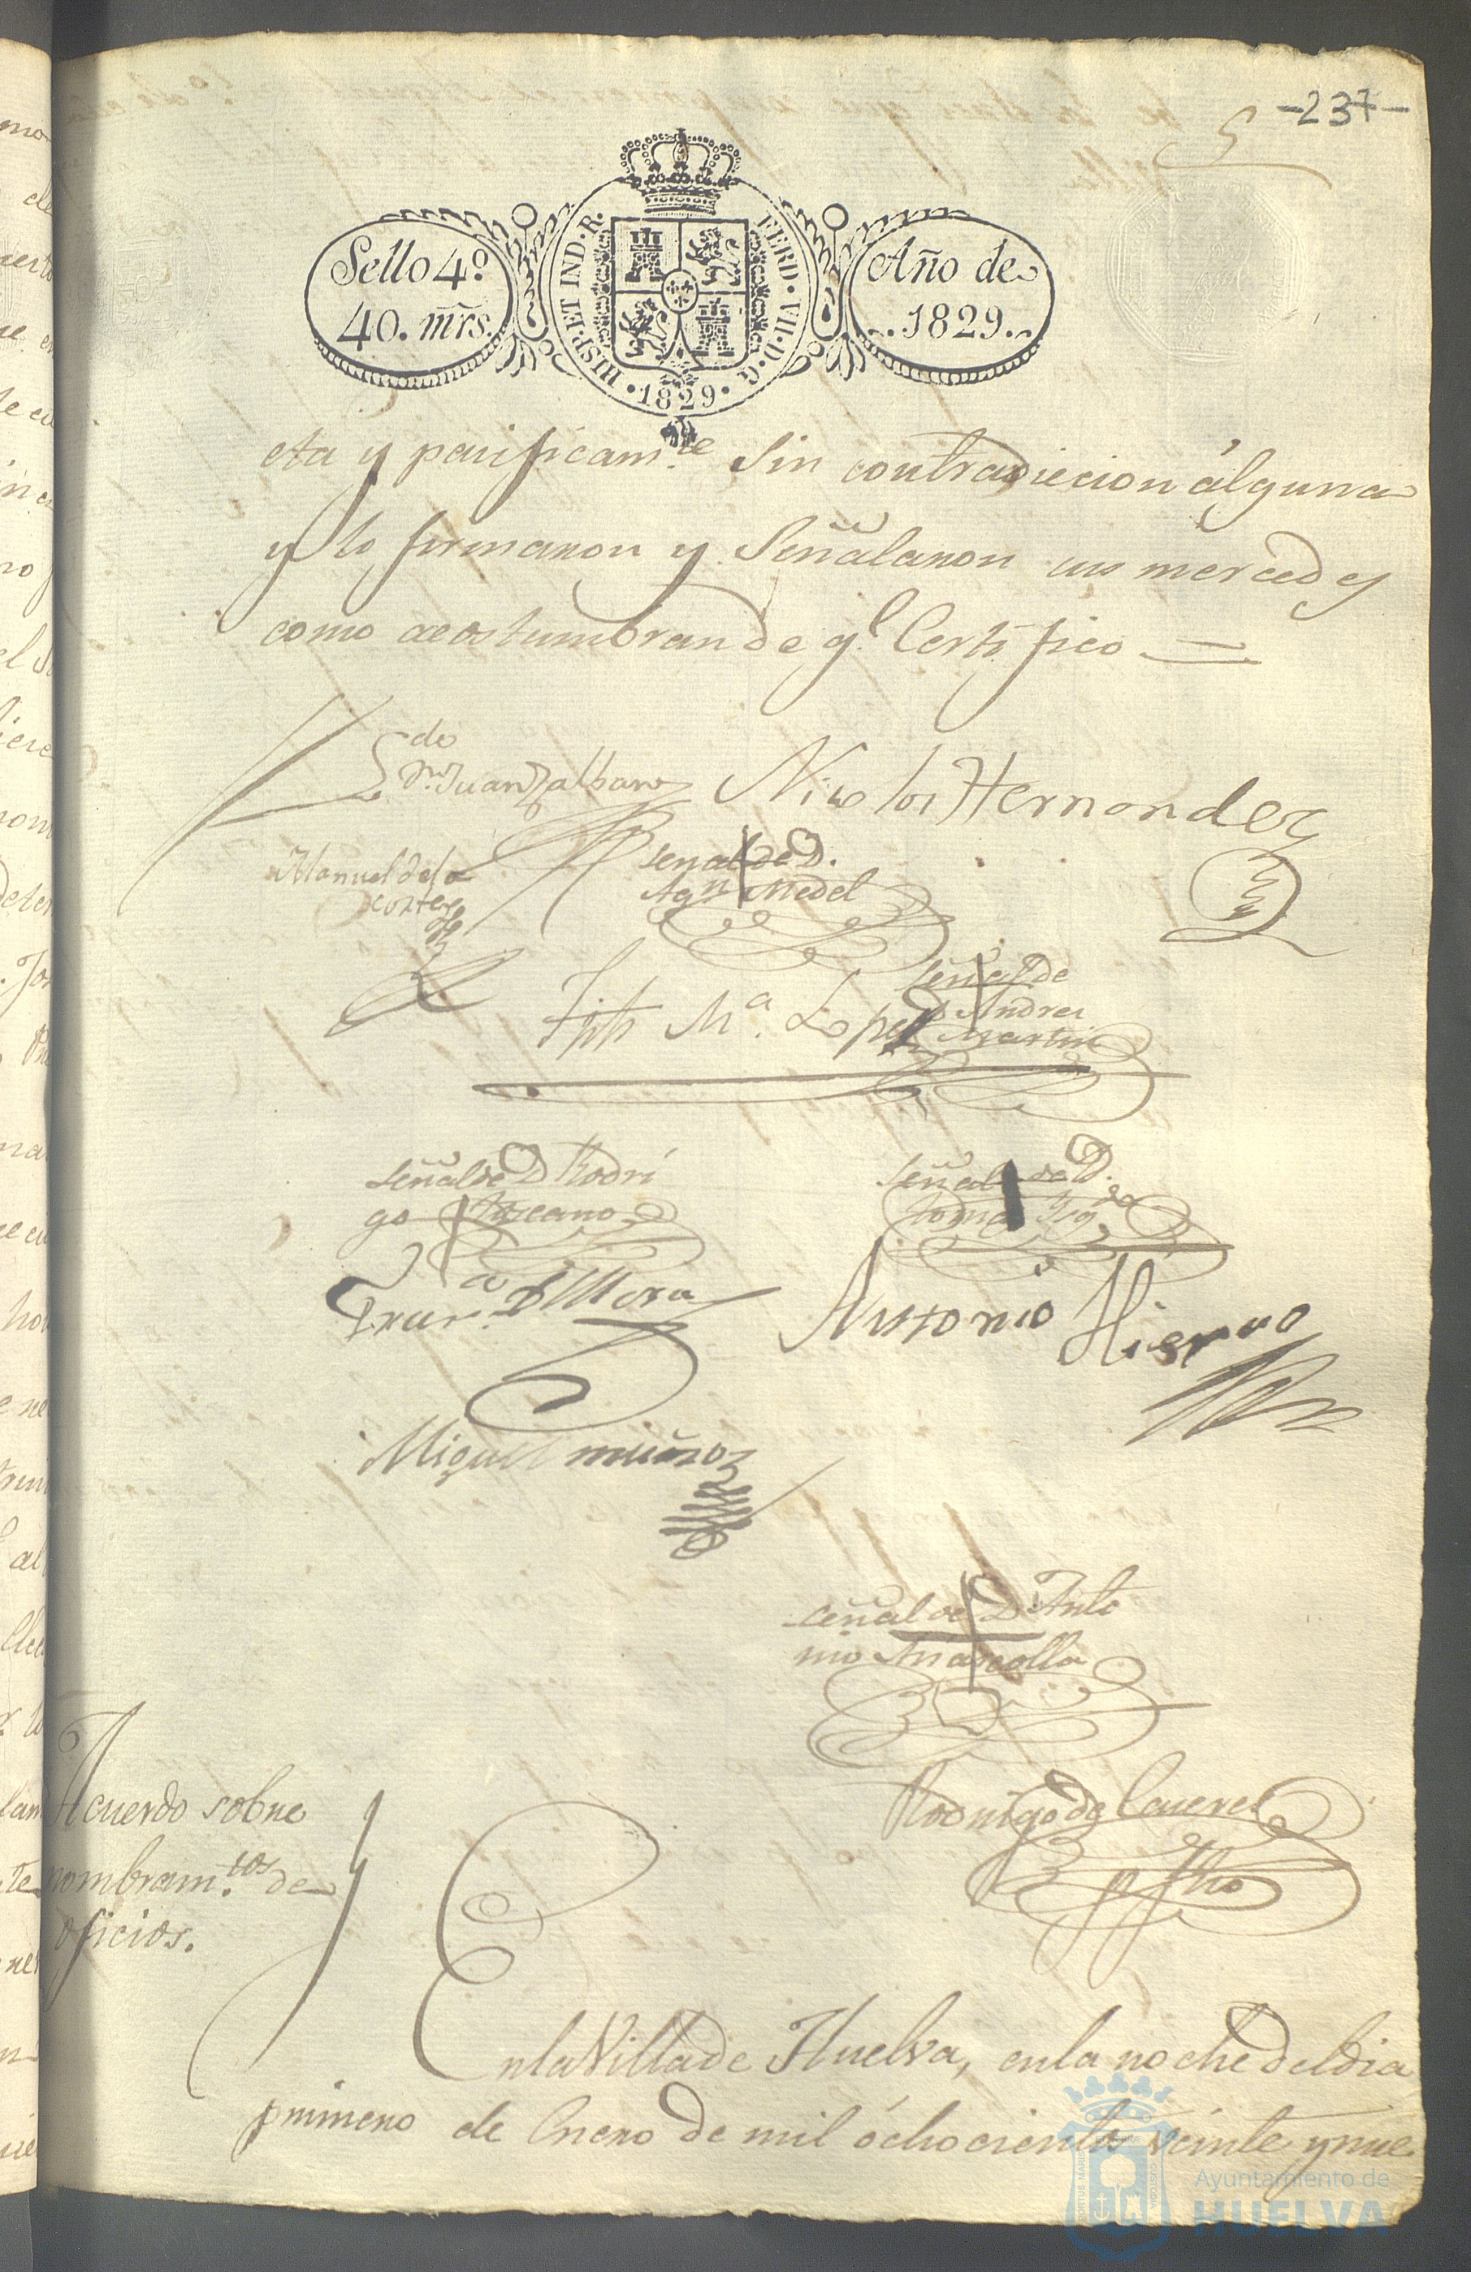 -237-
5
Sello 4º
40. mrs.
HISP. ET IND. R. FERD. VII. D. G.
• 1829 •
Año de
1829.
eta y pacificam.te sin contradiccion álguna
y lo firmaron y señalaron sus mercedes
como acostumbran de q.e Certifico =
Ldo
Dn. Juan
Nicolas Hernandez
Manuel de la
Corte
señal de D.
Agn. Medel
Señal de
D. Andres
Martin
Mª. Lopez
señal de D. Rodri
go Toscano
señal de D.
Franco. D Mora
Antonio Hierro
Miguel muñoz
señal de D. Anto
nio
Rodrigo de
Acuerdo sobre
nombram.tos de
oficios.
En la Villa de Huelva, en la noche del dia
primero de Enero de mil óchocientos veinte y nue
Ayuntamiento de
HUELVA